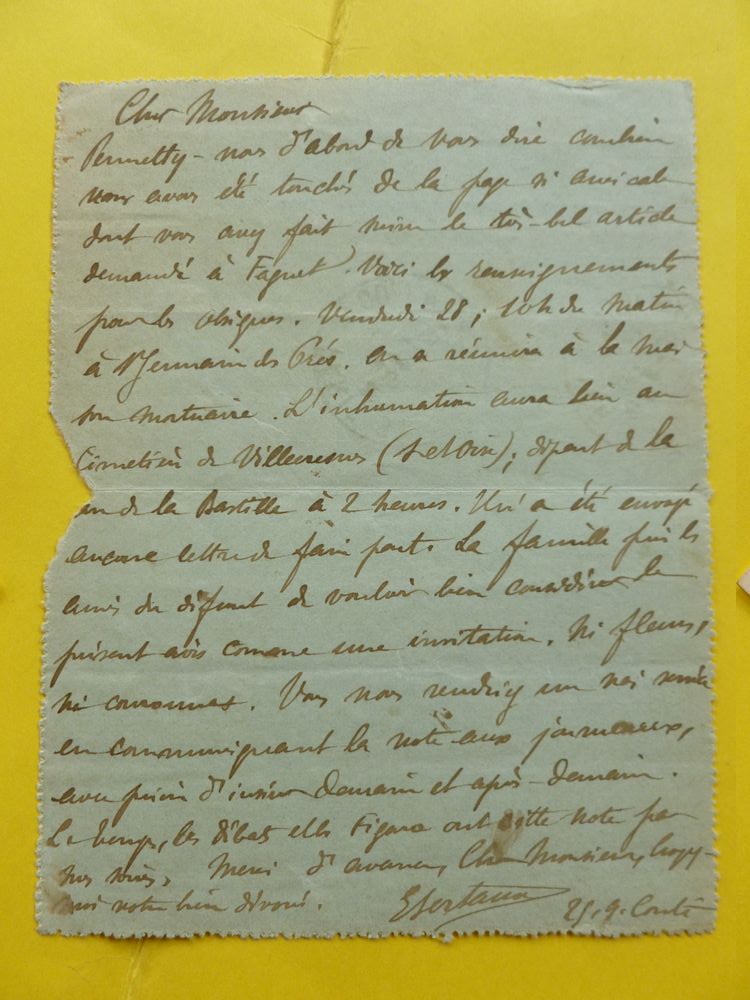 Cher Monsieur
Permettez-nous d'abord de vous dire combien
nous avons été touchés de la page si amicale
dont vous avez fait suivre le très-bel article
demandé à Faguet. Voici les renseignements
pour les obsèques. Vendredi 28, 10h du matin
à St Germain des Prés. On se réunira à la mai
son mortuaire. L'inhumation aura lieu au
Cimetière de Villecresnes (S et Oise); départ de la
gare de la Bastille à 2 heures. Il n'a été envoyé
aucune lettre de faire part. La famille prie les
amis du défunt de vouloir bien considérer le
présent avis comme une invitation. Ni fleurs,
ni couronnes. Vous nous rendriez un vrai service
en communiquant la note aux journeaux,
avec prière d'insérer demain et après-demain.
Le Temps, les Débats et le Figaro ont cette note par
nos soins. Merci d'avance, Cher Monsieur, croyez-
moi votre bien dévoué. 25.9. Conti